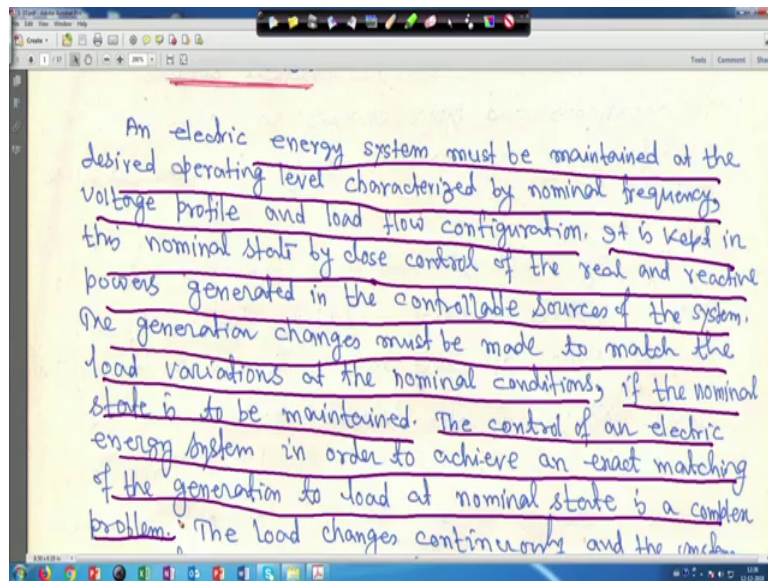 Edit View Window Help
Create
1 / 17
200%
Tools Comment Sha
An electric energy system must be maintained at the
desired operating level characterized by nominal frequency,
voltage profile and load flow configuration. It is kept in
this nominal state by close control of the real and reactive
powers generated in the controllable sources of the system.
The generation changes must be made to match the
load variations at the nominal conditions, if the nominal
state is to be maintained. The control of an electric
energy system in order to achieve an exact matching
of the generation to load at nominal state is a complex
problem. The load changes continuously and the system
8.50 x 8.10 in
12:36